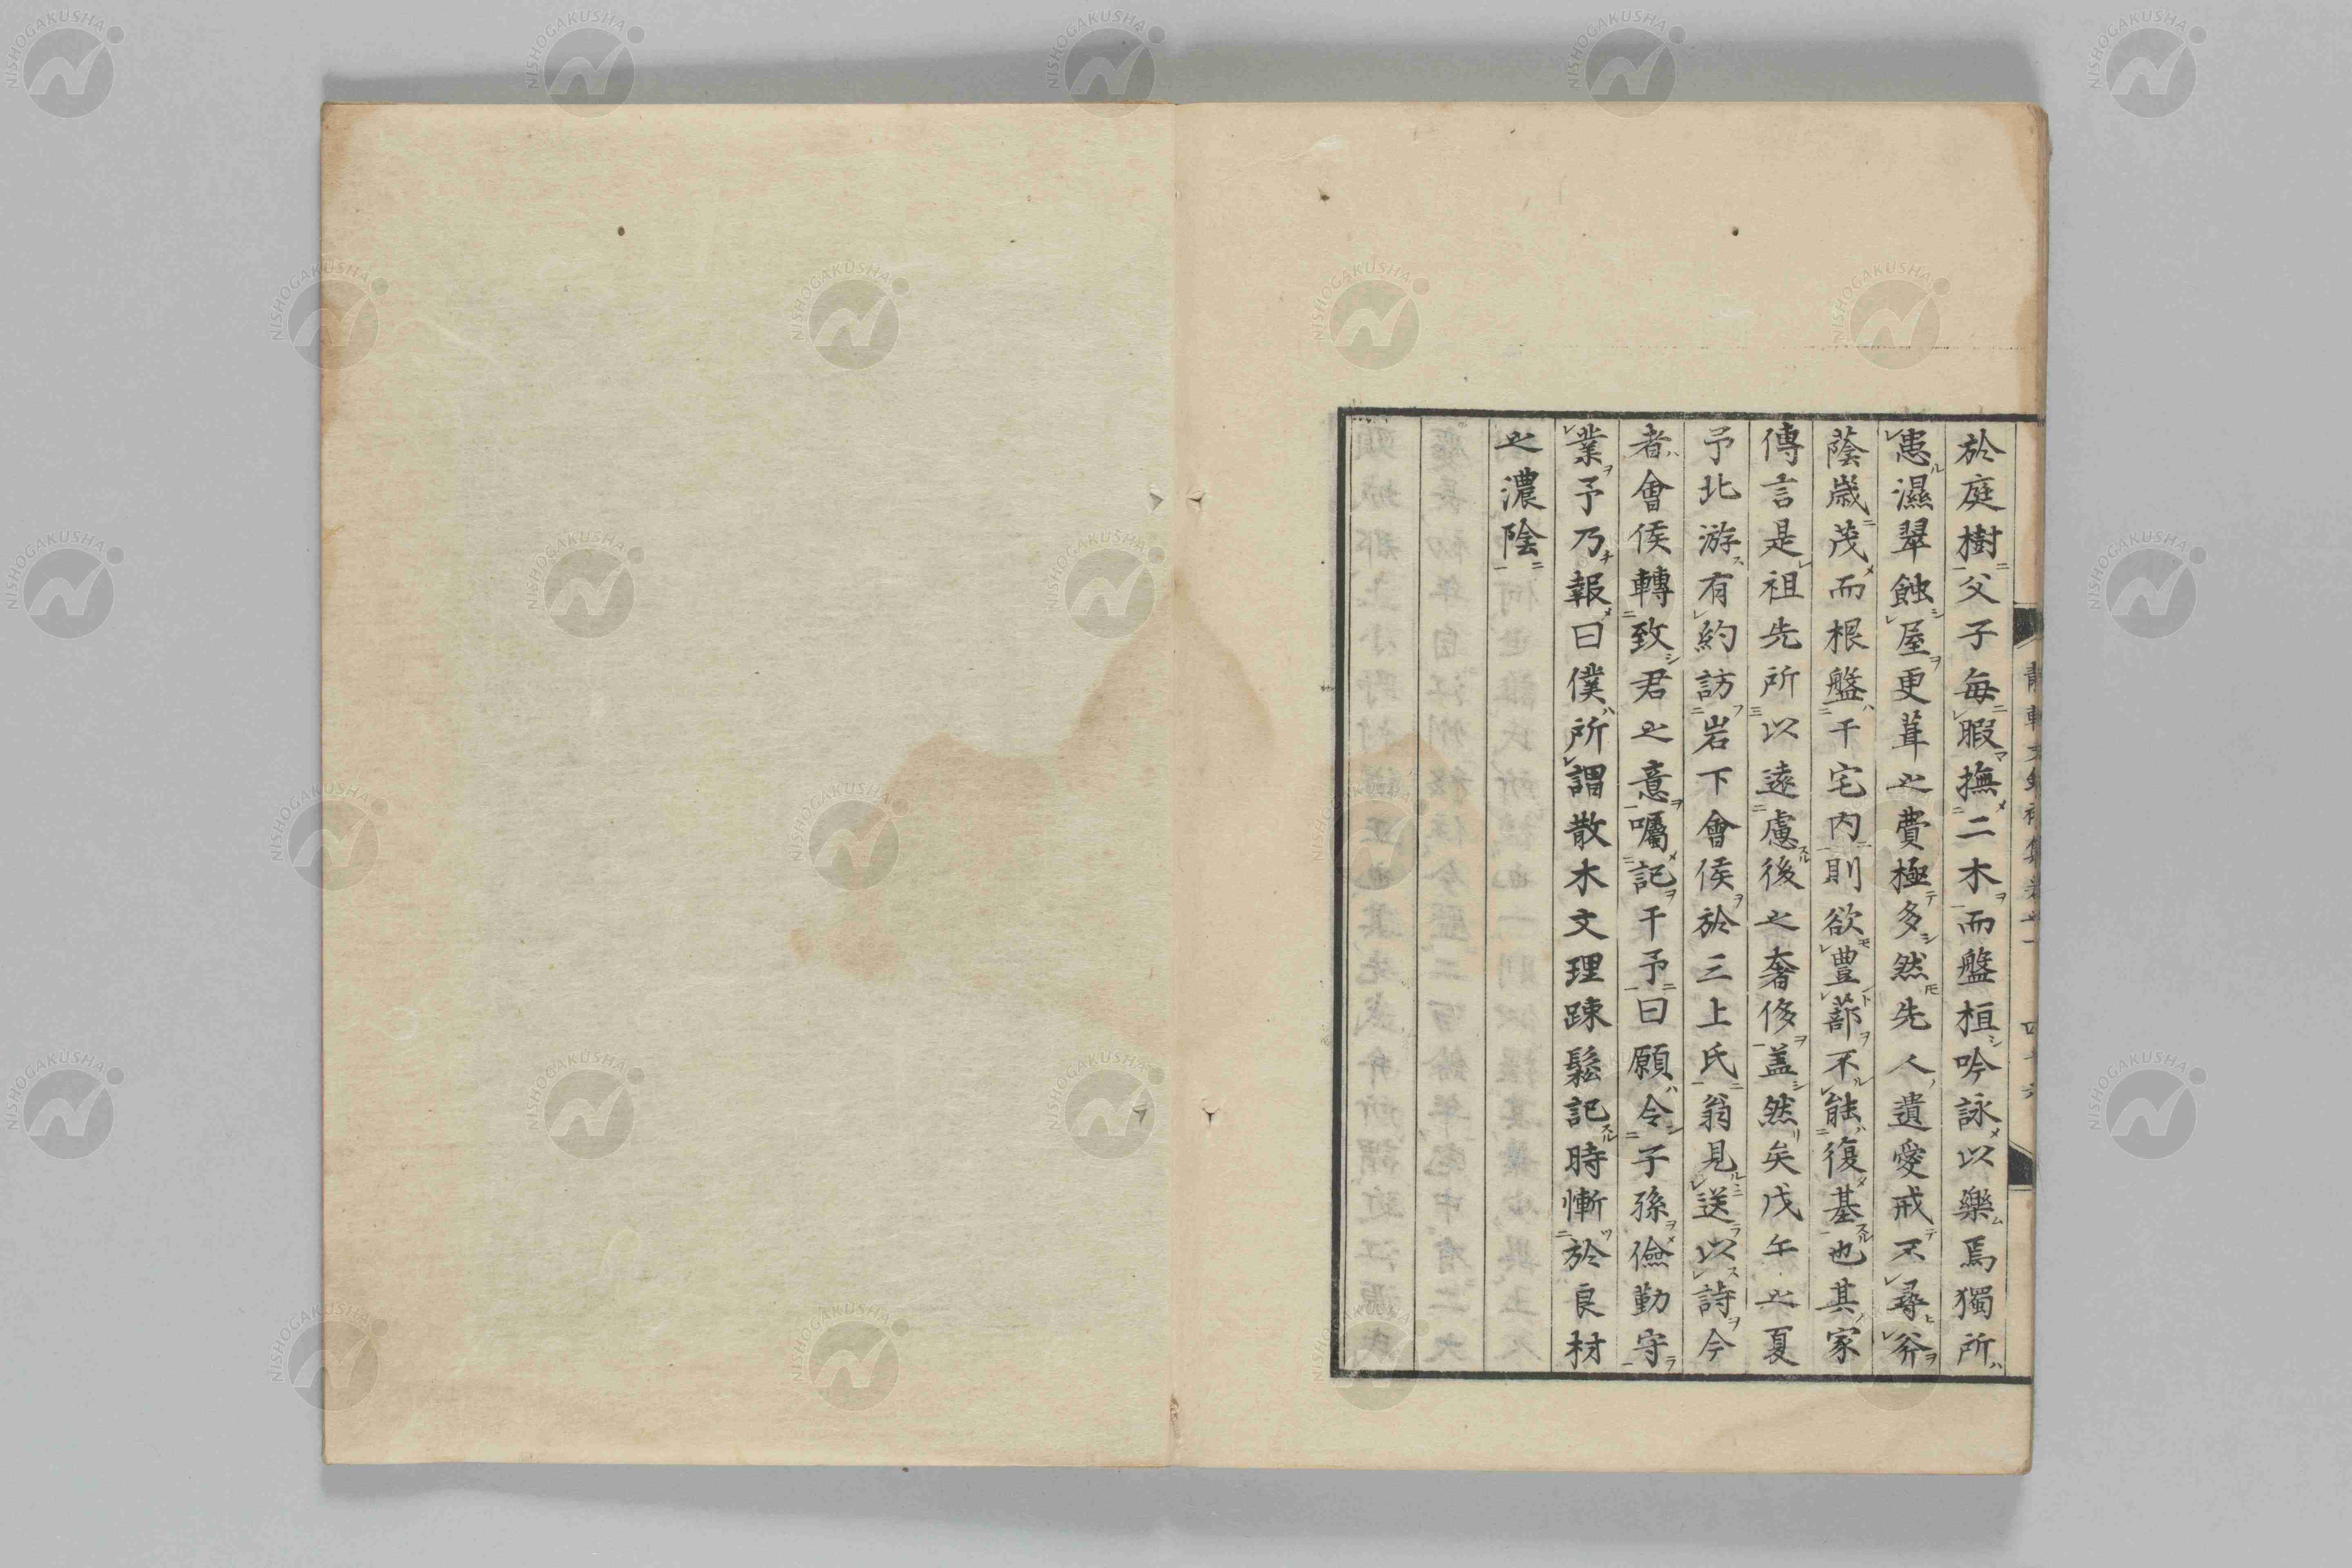 於庭樹父子每暇撫二木而盤桓吟詠以樂焉獨所
患濕翠蝕屋更葺之費極多然先人遺愛戒不尋斧
蔭歳茂而根盤于宅内則欲豊蔀不能復基也其家
傳言是祖先所以遠慮後之奢侈盖然矣戊午之夏
予北游有約訪岩下會侯於三上氏翁見送以詩今
者會侯轉致君之意囑記于予曰願令子孫儉勤守
業予乃報曰僕所謂散木文理踈鬆記時慚於良材
之濃陰
NISHOGAKUSHA